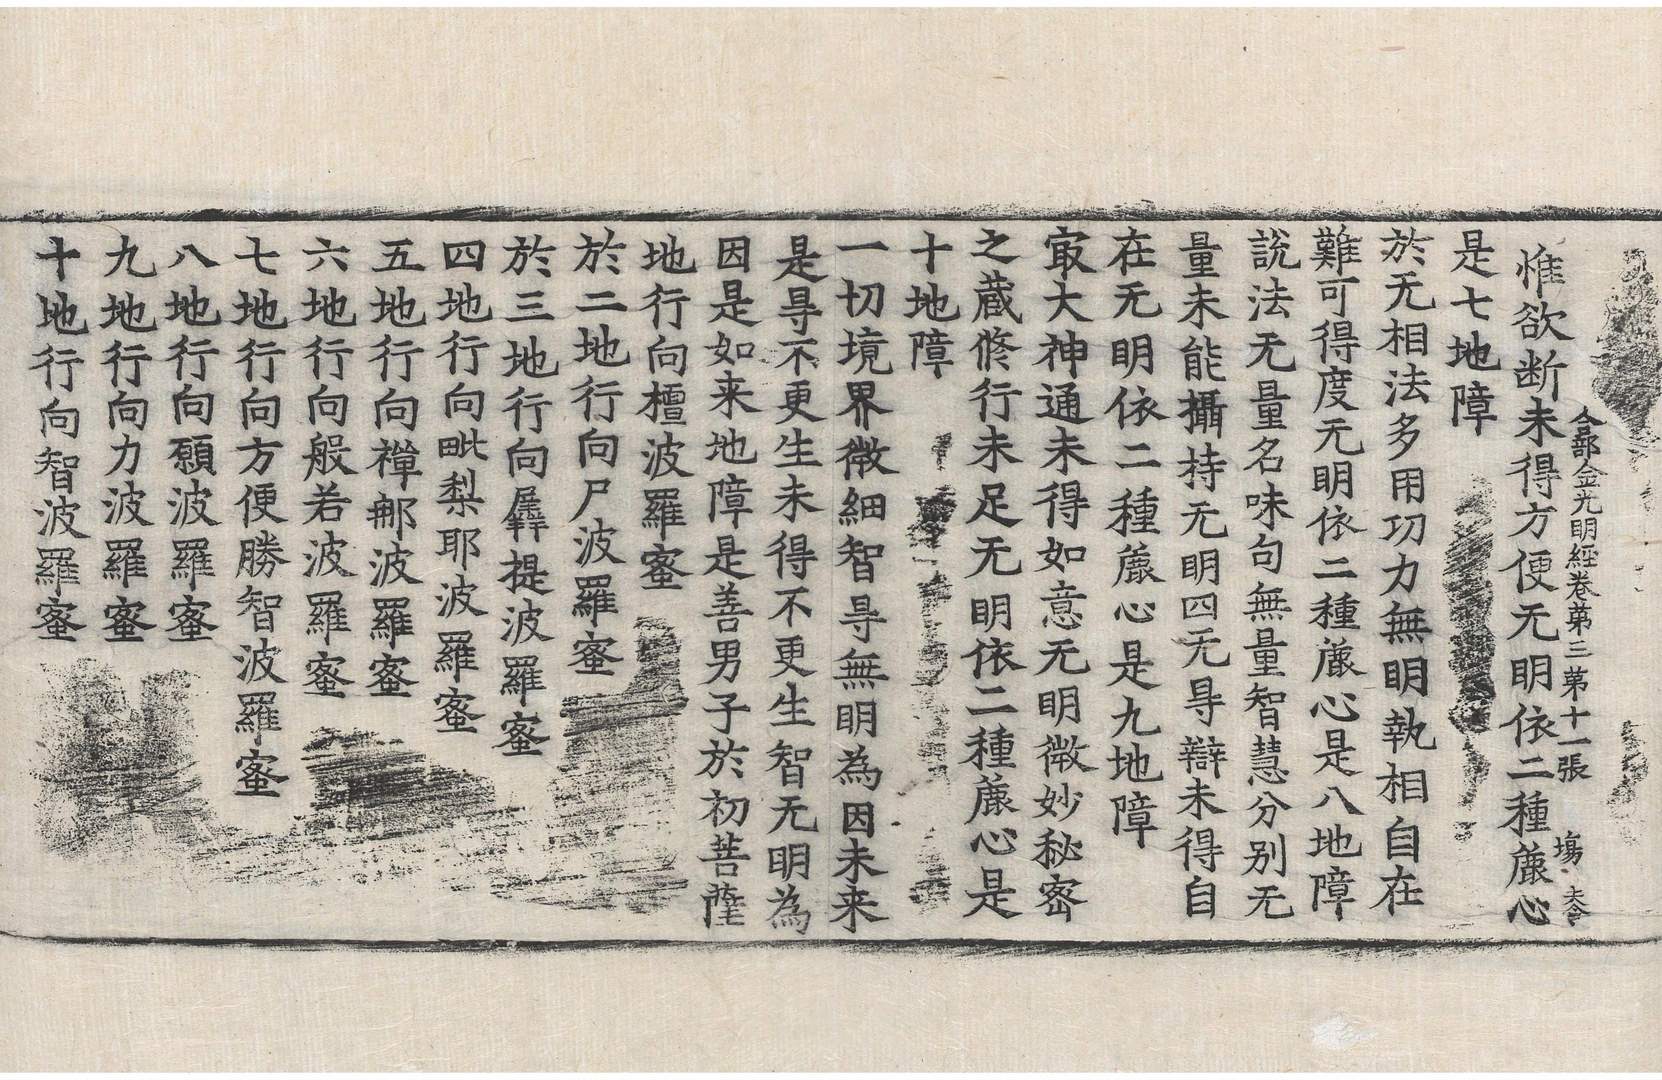 惟欲断未得方便无明依二種麁心
合部金光明經卷第三 第十一張 塲
是七地障
於无相法多用功力無明執相自在
難可得度无明依二種麁心是八地障
說法无量名味句無量智慧分別无
量未能攝持无明四无㝵辯未得自
在无明依二種麁心是九地障
㝡大神通未得如意无明微妙秘密
之蔵脩行未足无明依二種麁心是
十地障
一切境界微細智㝵無明為因未来
是㝵不更生未得不更生智无明為
因是如来地障是善男子於初菩薩
地行向檀波羅蜜
於二地行向尸波羅蜜
於三地行向羼提波羅蜜
四地行向毗梨耶波羅蜜
五地行向禪那波羅蜜
六地行向般若波羅蜜
七地行向方便勝智波羅蜜
八地行向願波羅蜜
九地行向力波羅蜜
十地行向智波羅蜜